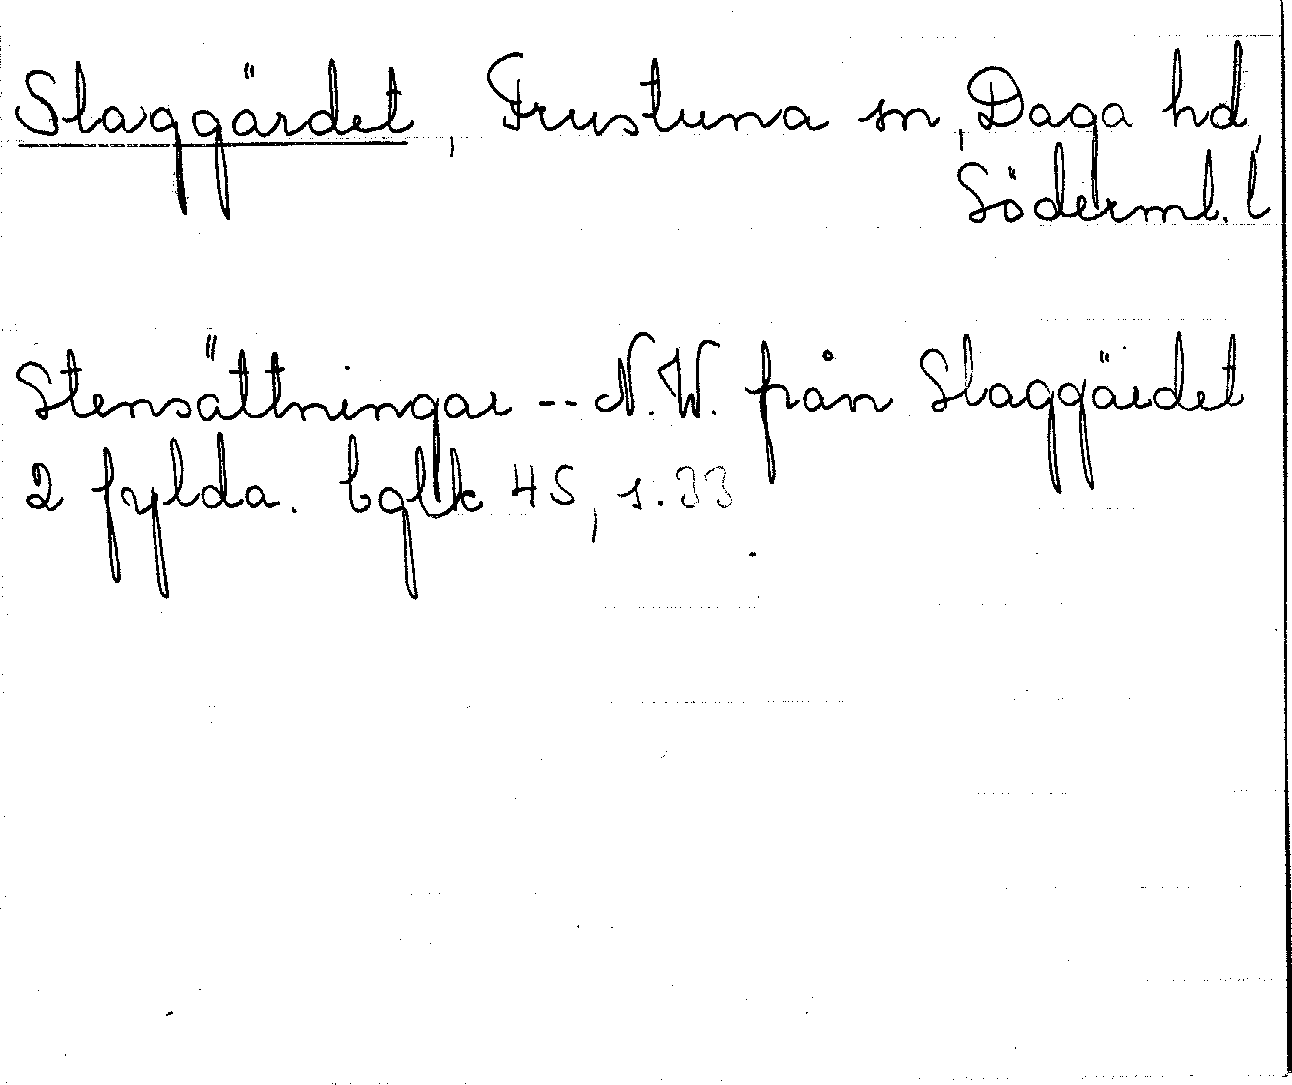 Slaggärdet, Frustuna sn, Daga hd,
Söderml. l
Stensättningar -- N.W. från Slaggärdet
2 fylda. bglk 45, s. 33